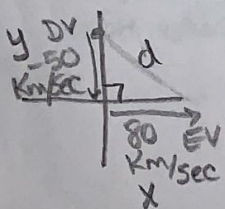 y DV
-50
Km/sec
d
80 EV
Km/sec
x